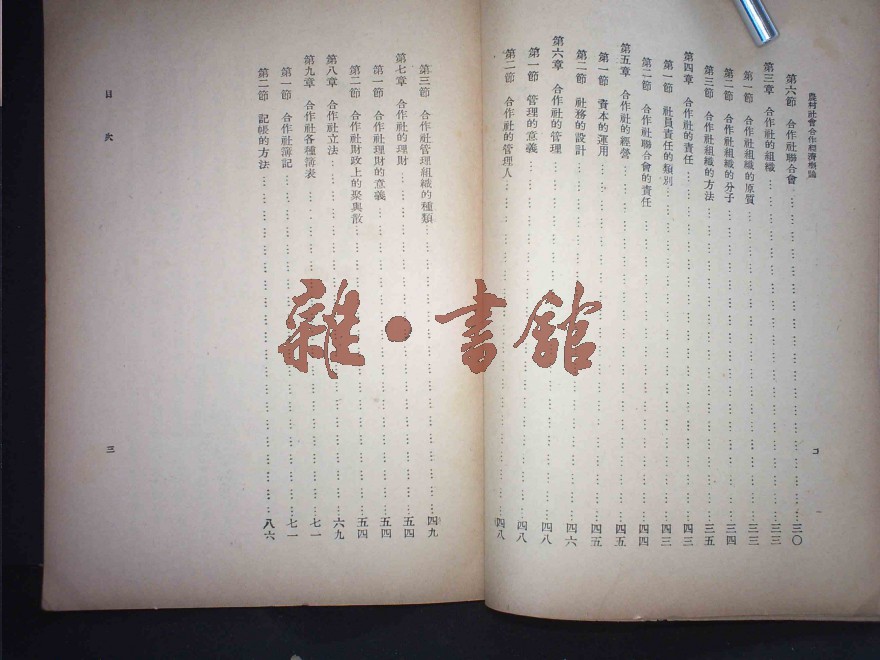 農村社會合作經濟概論
二
第六節 合作社聯合會……三〇
第三章 合作社的組織……三三
第一節 合作社組織的原質……三三
第二節 合作社組織的分子……三四
第三節 合作社組織的方法……三五
第四章 合作社的責任……四三
第一節 社員責任的類別……四三
第二節 合作社聯合會的責任……四四
第五章 合作社的經營……四五
第一節 資本的運用……四五
第二節 社務的設計……四六
第六章 合作社的管理……四八
第一節 管理的意義……四八
第二節 合作社的管理人……四八
第三節 合作社管理組織的種類……四九
第七章 合作社的理財……五四
第一節 合作社理財的意義……五四
第二節 合作社財政上的聚與散……五四
第八章 合作社立法……六九
第九章 合作社各種簿表……七一
第一節 合作社簿記……七一
第二節 記帳的方法……八六
目次
三
雜·書館